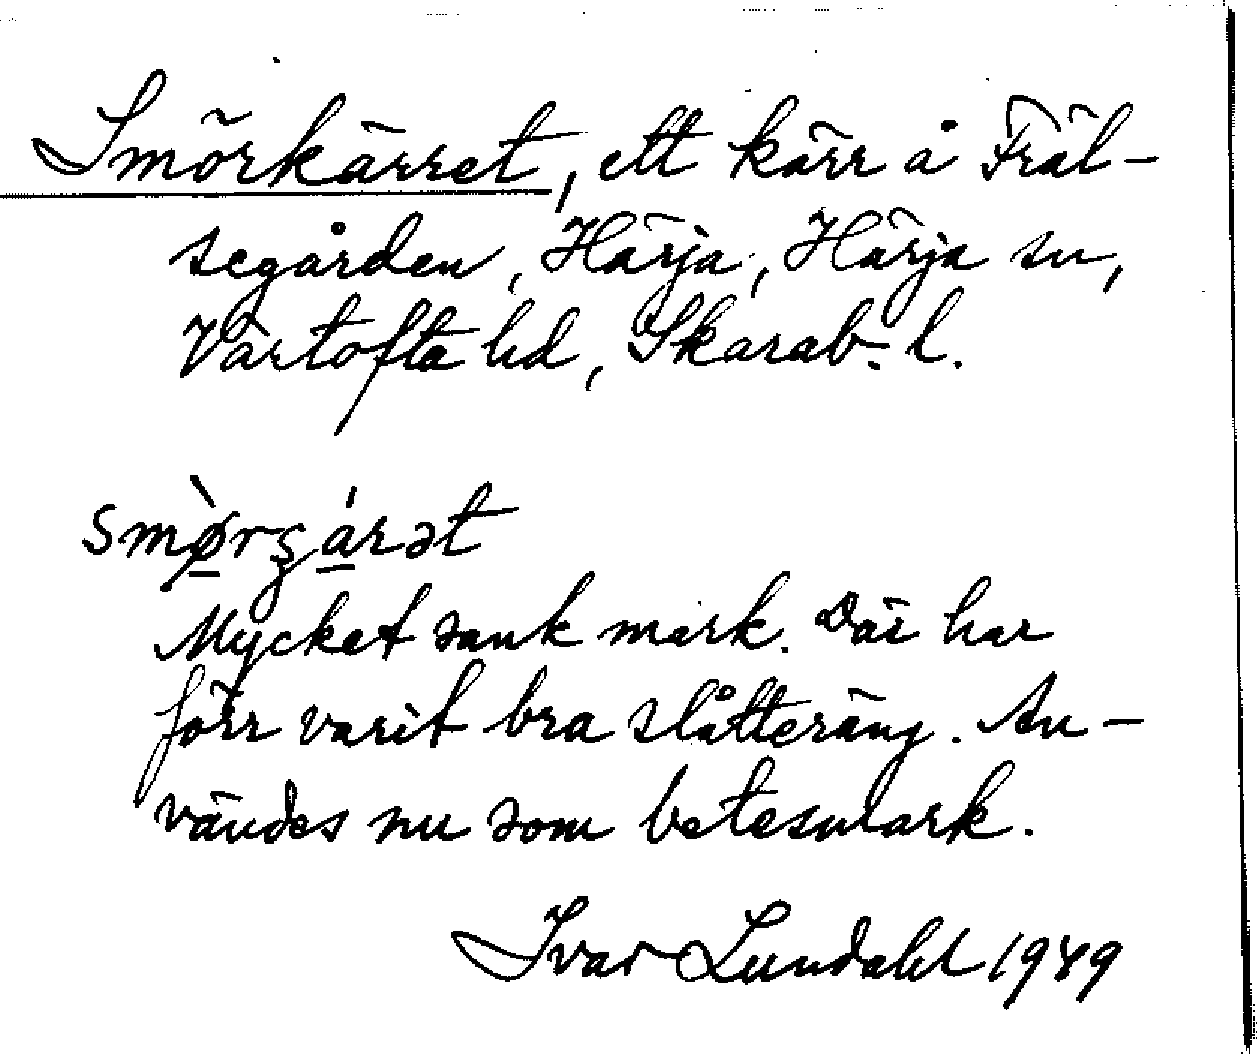 Smörkärret, ett kärr å Fräl-
segården, Härja, Härja sn,
Vartofta hd, Skarab. l.
smø̀rʒárət
Mycket sank mark. Där har
förr varit bra slåtteräng. An-
vändes nu som betesmark.
Ivar Lundahl 1949